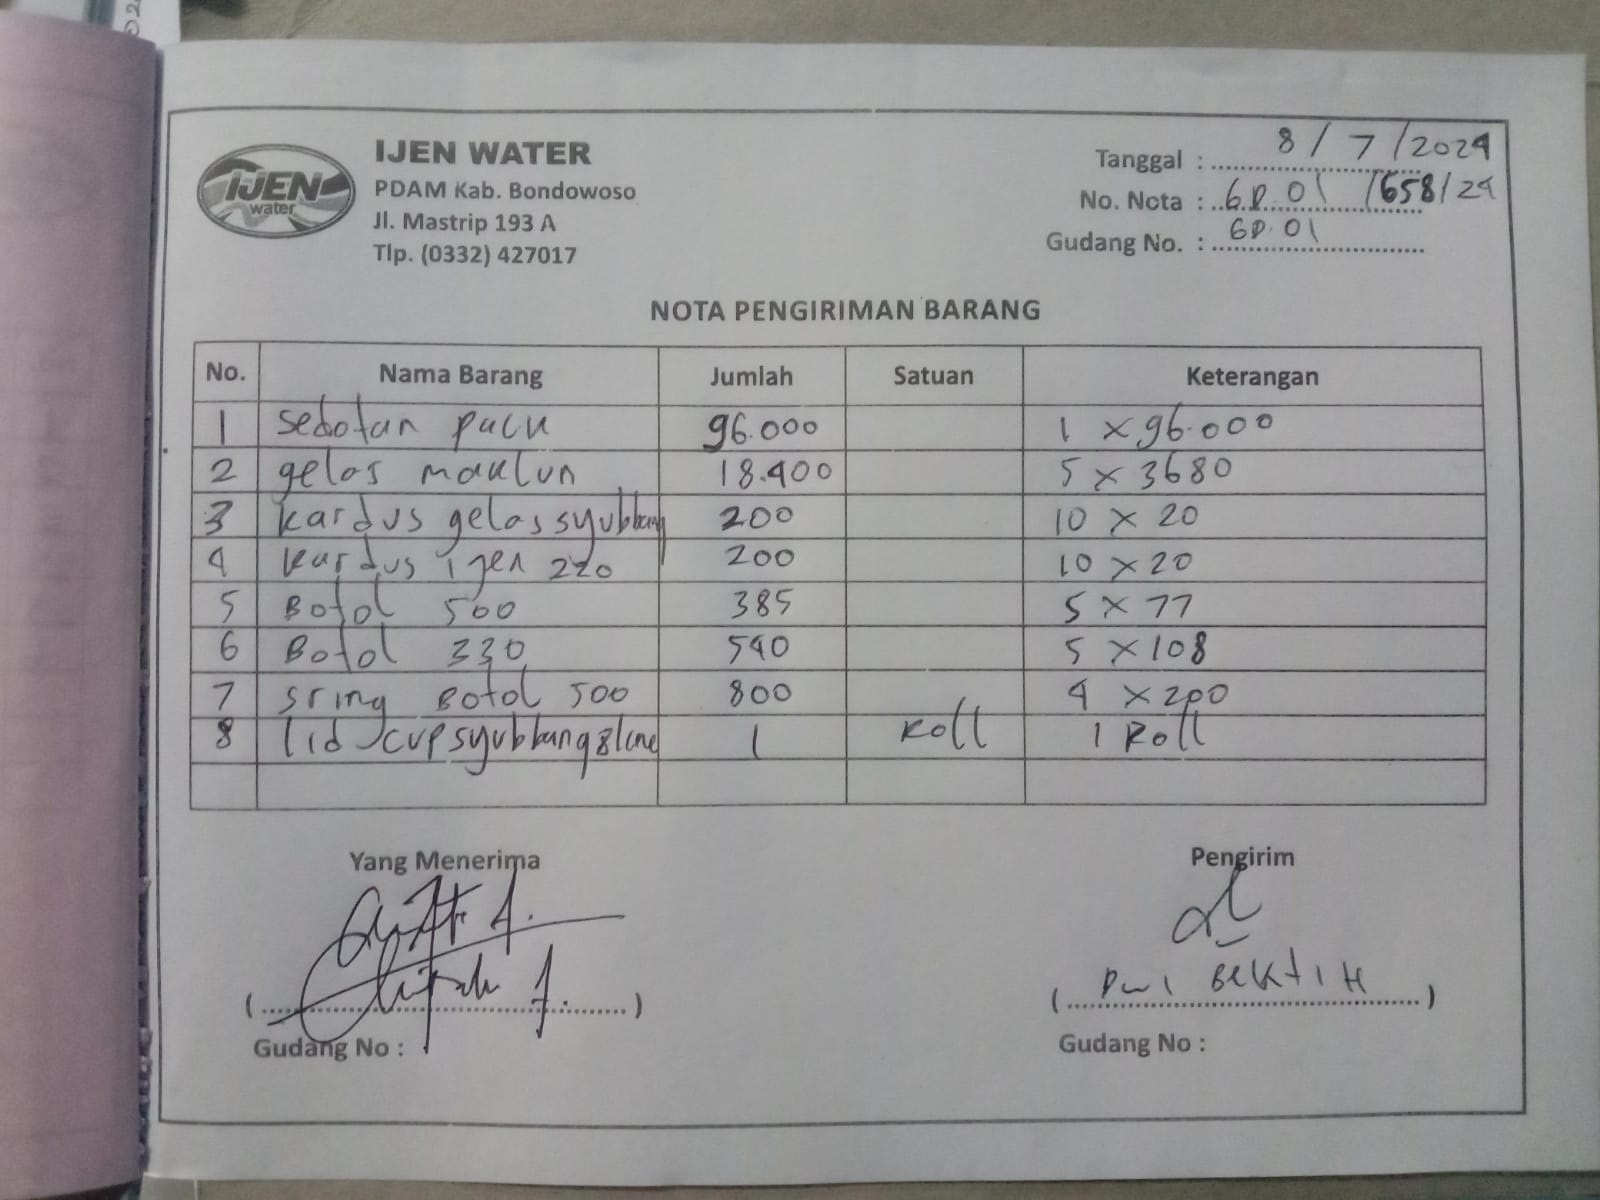 IJEN WATER
PDAM Kab. Bondowoso
Jl. Mastrip 193 A
Tlp. (0332) 427017
IJEN
water
Tanggal : 8 / 7 / 2024
No. Nota : GD.01 /658/24
Gudang No. : GD.01
NOTA PENGIRIMAN BARANG
No. Nama Barang Jumlah Satuan Keterangan
1 sedotan pacu 96.000 1 x 96.000
2 gelas maklun 18.400 5 x 3680
3 kardus gelas syubbang 200 10 x 20
4 kardus ijen 220 200 10 x 20
5 Botol 500 385 5 x 77
6 Botol 330 540 5 x 108
7 sring Botol 500 800 4 x 200
8 lid cup syubbang 8 line 1 Roll 1 Roll
Yang Menerima Pengirim
( ) ( Dwi Bekti H )
Gudang No : Gudang No :